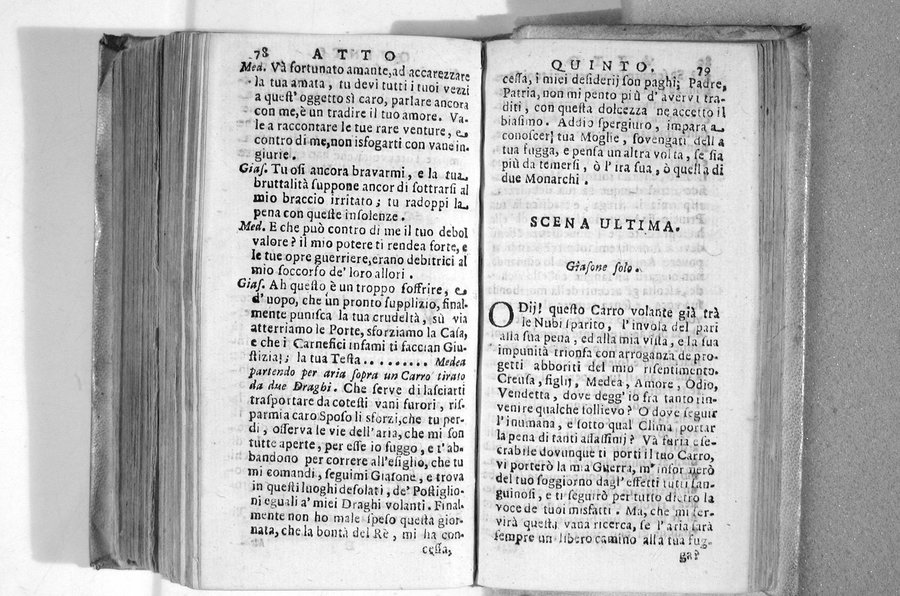 78 ATTO
Med. Và fortunato amante, ad accarezzare
la tua amata, tu devi tutti i tuoi vezzi
a quest' oggetto sì caro, parlare ancora
con me, è un tradire il tuo amore. Va-
le a raccontare le tue rare venture, e
contro di me, non isfogarti con vane in-
giurie.
Gias. Tu osi ancora bravarmi, e la tua
bruttalità suppone ancor di sottrarsi al
mio braccio irritato; tu radoppi la
pena con queste insolenze.
Med. E che può contro di me il tuo debol
valore? il mio potere ti rendea forte, e
le tue opre guerriere, erano debitrici al
mio soccorso de' loro allori.
Gias. Ah questo è un troppo soffrire, e
d' uopo, che un pronto supplizio, final-
mente punisca la tua crudeltà, sù via
atterriamo le Porte, sforziamo la Casa,
e che i Carnefici infami ti faccian Giu-
stizia!; la tua Testa......... Medea
partendo per aria sopra un Carro tirato
da due Draghi. Che serve di lasciarti
trasportare da cotesti vani furori, ris-
parmia caro Sposo li sforzi, che tu per-
di, osserva le vie dell'aria, che mi son
tutte aperte, per esse io fuggo, e t'ab-
bandono per correre all'esiglio, che tu
mi comandi, seguimi Giasone, e trova
in questi luoghi desolati, de' Postiglio-
ni eguali a' miei Draghi volanti. Final-
mente non ho male speso questa gior-
nata, che la bontà del Rè, mi ha con-
cessa,
QUINTO. 79
cessa, i miei desiderij son paghi; Padre,
Patria, non mi pento più d' avervi tra-
diti, con questa dolcezza ne accetto il
biasimo. Addio spergiuro, impara a
conoscer; tua Moglie, sovengati della
tua fugga, e pensa un altra volta, se sia
più da temersi, ò l' ira sua, ò quella di
due Monarchi.
SCENA ULTIMA.
Giasone solo.
O Dij! questo Carro volante già trà
le Nubi sparito, l'invola del pari
alla sua pena, ed alla mia vista, e la sua
impunità trionfa con arroganza de pro-
getti abboriti del mio risentimento.
Creusa, figlj, Medea, Amore, Odio,
Vendetta, dove degg' io fra tanto rin-
venire qualche sollievo? O dove seguir
l'inumana, e sotto qual Clima portar
la pena di tanti assassinj? Và furia ese-
crabile dovunque ti porti il tuo Carro,
vi porterò la mia Guerra, m' informerò
del tuo soggiorno dagl' effetti tutti san-
guinosi, e ti seguirò per tutto dietro la
voce de tuoi misfatti. Ma, che mi ser-
virà questa vana ricerca, se l'aria sarà
sempre un libero camino alla tua fug-
ga?